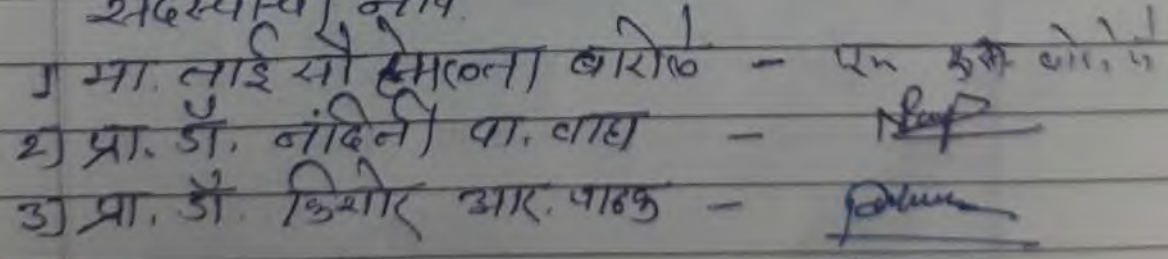 सदस्याचे नाव
१) मा. ताई सौ हेमलता बारोळे -
२) प्रा. डॉ. नंदिनी वा. वाघ -
३) प्रा. डॉ. किशोर आर. पाठक -